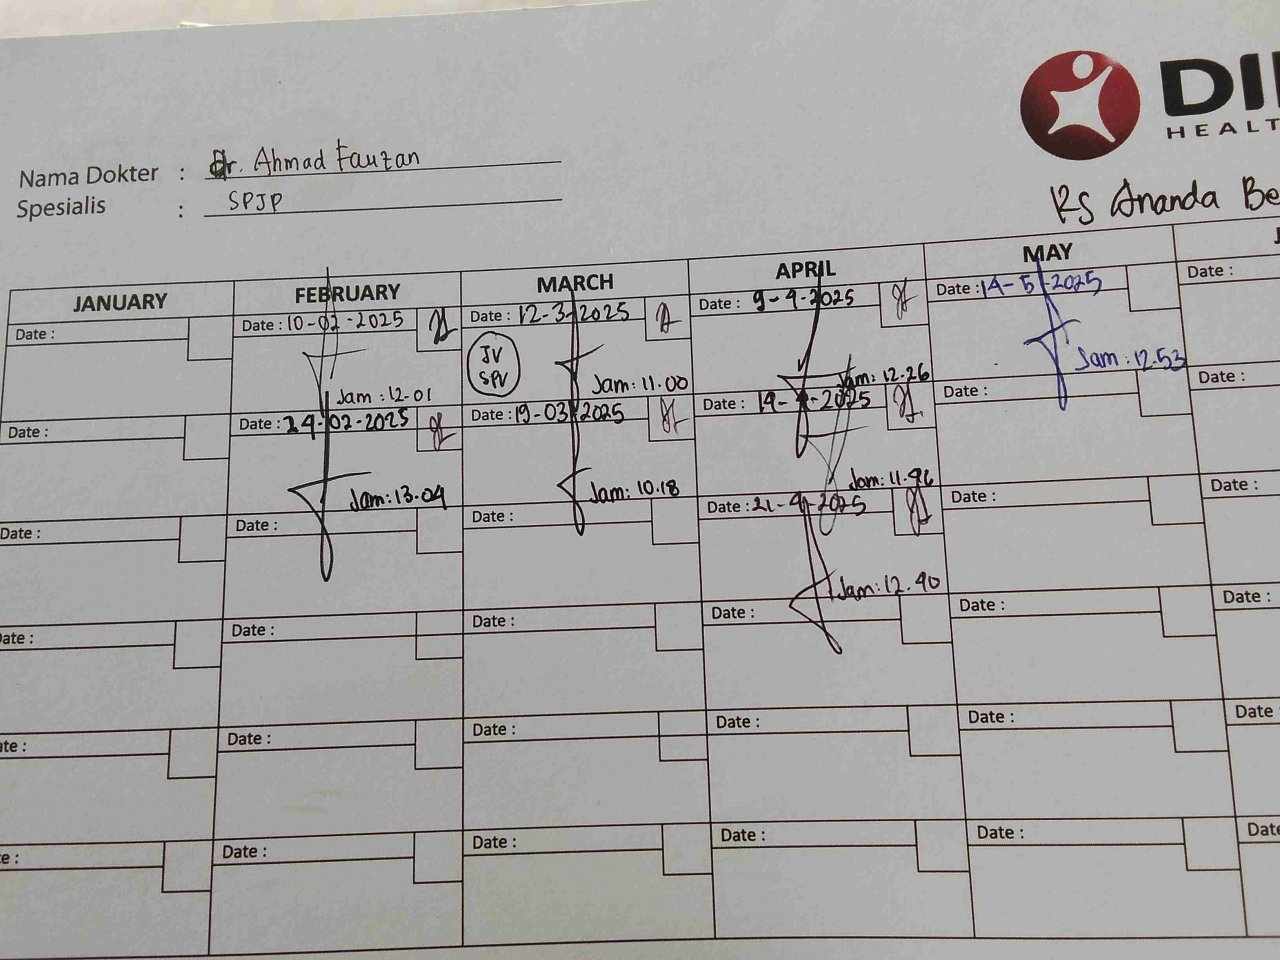 DI
HEALT
Nama Dokter : Dr. Ahmad Fauzan
Spesialis : SPJP
RS Ananda Be
JANUARY FEBRUARY MARCH APRIL MAY J
Date : Date : 10-02-2025 Date : 12-3-2025 Date : 9-4-2025 Date : 14-5-2025 Date :
JV
SPV
Jam : 12.01 Jam : 11.00 Jam : 12.26 Jam : 12.53
Date : Date : 24-02-2025 Date : 19-03-2025 Date : 14-4-2025 Date : Date :
Jam : 13.04 Jam : 10.18 Jam : 11.46
Date : Date : Date : Date : 21-4-2025 Date : Date :
Jam : 12.40
ate : Date : Date : Date : Date : Date :
ate : Date : Date : Date : Date : Date
e : Date : Date : Date : Date : Date